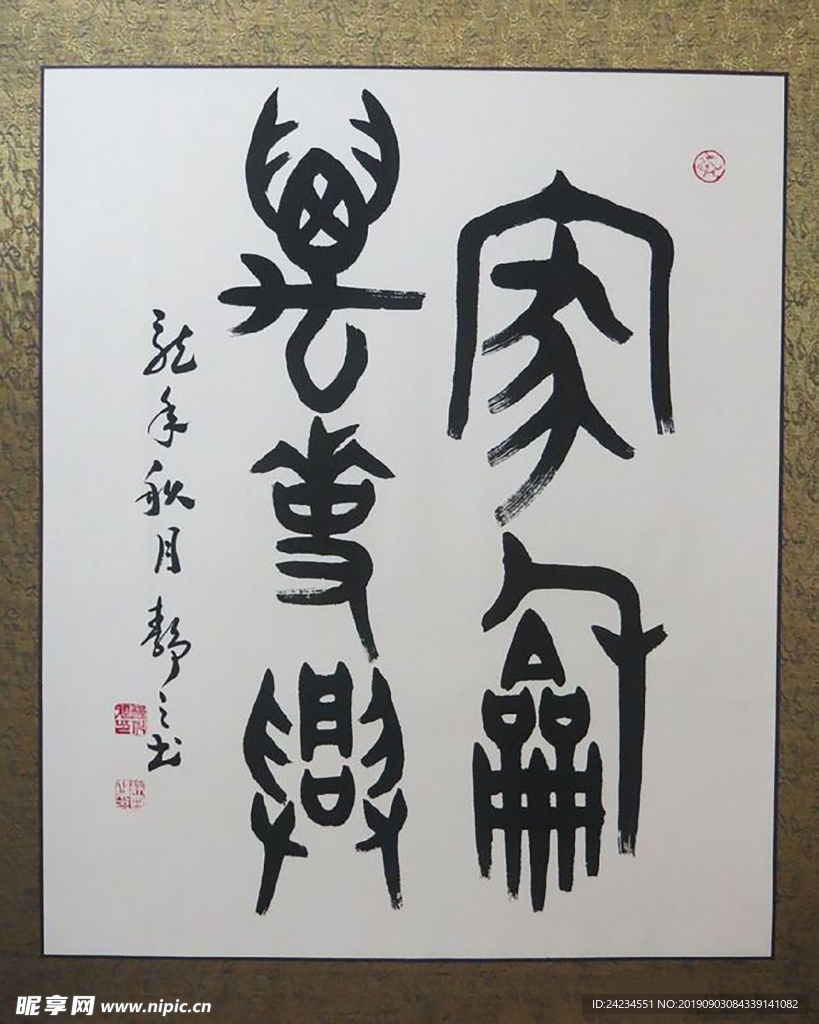 家龢
萬事興
龍年秋月靜之书
昵享网 www.nipic.cn
ID:24234551 NO:20190903084339141082